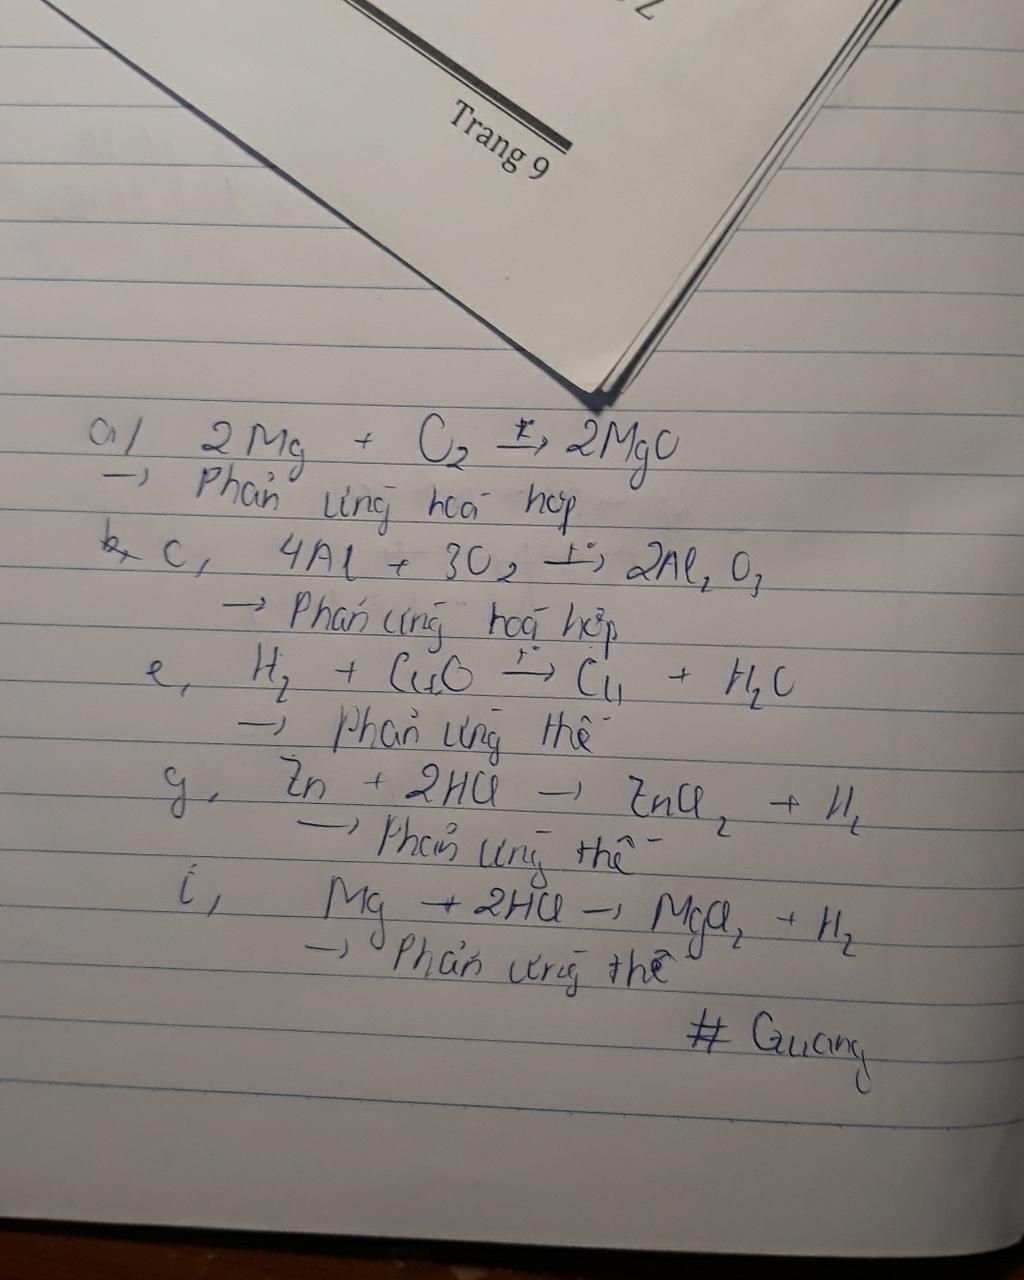 Trang 9
a/ 2Mg + O₂ t°→ 2MgO
→ Phản ứng hoá hợp
c, 4Al + 3O₂ t°→ 2Al₂O₃
→ Phản ứng hoá hợp
e, H₂ + CuO t°→ Cu + H₂O
→ Phản ứng thế
g, Zn + 2HCl → ZnCl₂ + H₂
→ Phản ứng thế
i, Mg + 2HCl → MgCl₂ + H₂
→ Phản ứng thế
# Quang